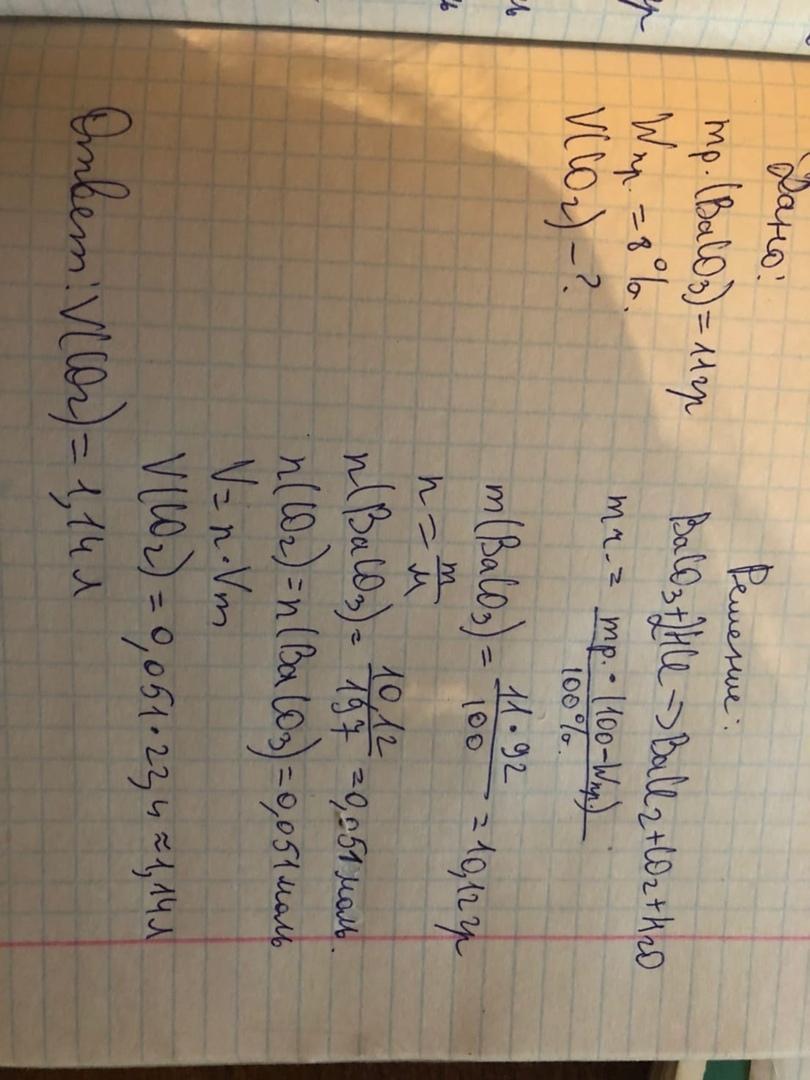 Дано:
mр.(BaCO3)=11гр
Wпр.=8%.
V(CO2)-?
Решение:
BaCO3+2HCl→BaCl2+CO2+H2O
mч.= mр.·(100-Wпр.)/100%.
m(BaCO3)= 11·92/100 =10,12гр
n= m/M
n(BaCO3)= 10,12/197 =0,051моль.
n(CO2)=n(BaCO3)=0,051моль
V=n·Vm
V(CO2)=0,051·22,4≈1,14л
Ответ: V(CO2)=1,14л